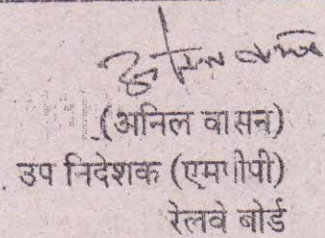 (अनिल वासन)
उप निदेशक (एमपीपी)
रेलवे बोर्ड